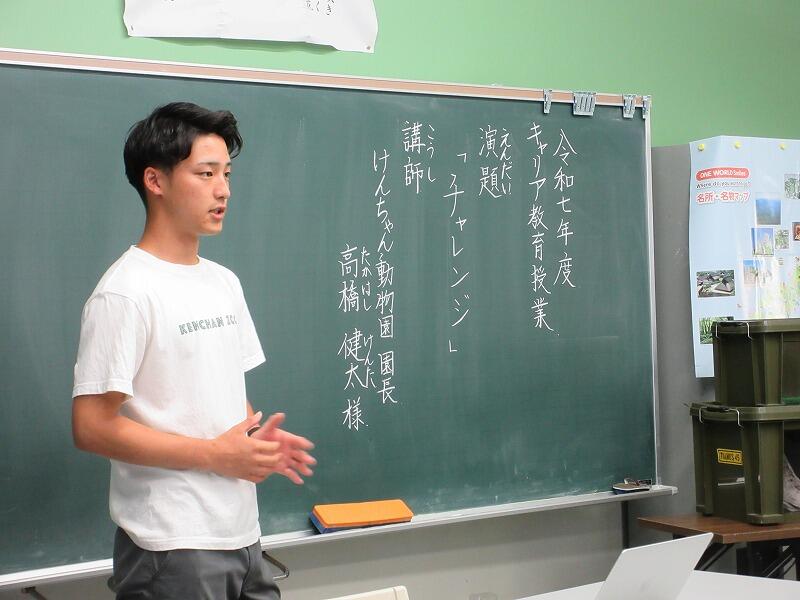 令和七年度
キャリア教育授業
えんだい
演題
「チャレンジ」
こうし
講師
けんちゃん動物園 園長
たかはし けんた
高橋 健太 様
KENCHAN ZOO
ONE WORLD Smiles
名所・名物マップ